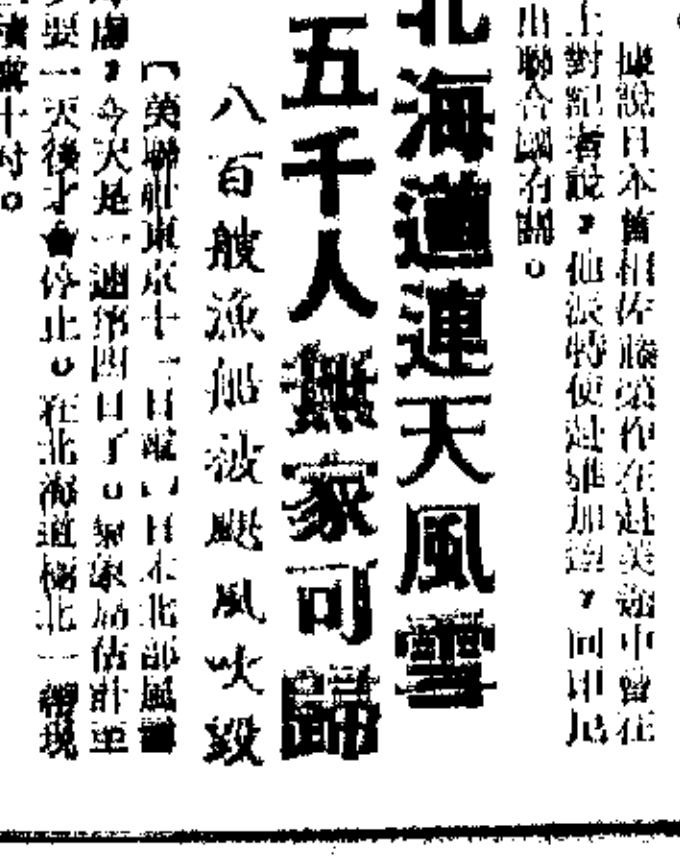 據說日本首相佐藤榮作在赴美途中曾在
上對記者說，他派特使赴雅加達，向印尼
出聯合國有關。
北海道連天風雪
五千人無家可歸
八百艘漁船被颶風吹毀
【美聯社東京十一日電】日本北部風雪
，今天是一連第四日了。氣象局估計至
要一天後才會停止。在北海道極北一帶現
十村。